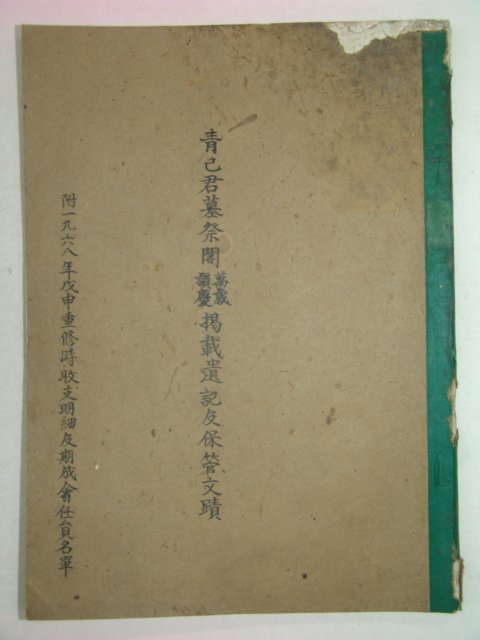 青己君墓祭閣萬歲讚慶揭載遺記及保管文蹟
附一九六八年戊申重修時收支明細及期成會任員名單